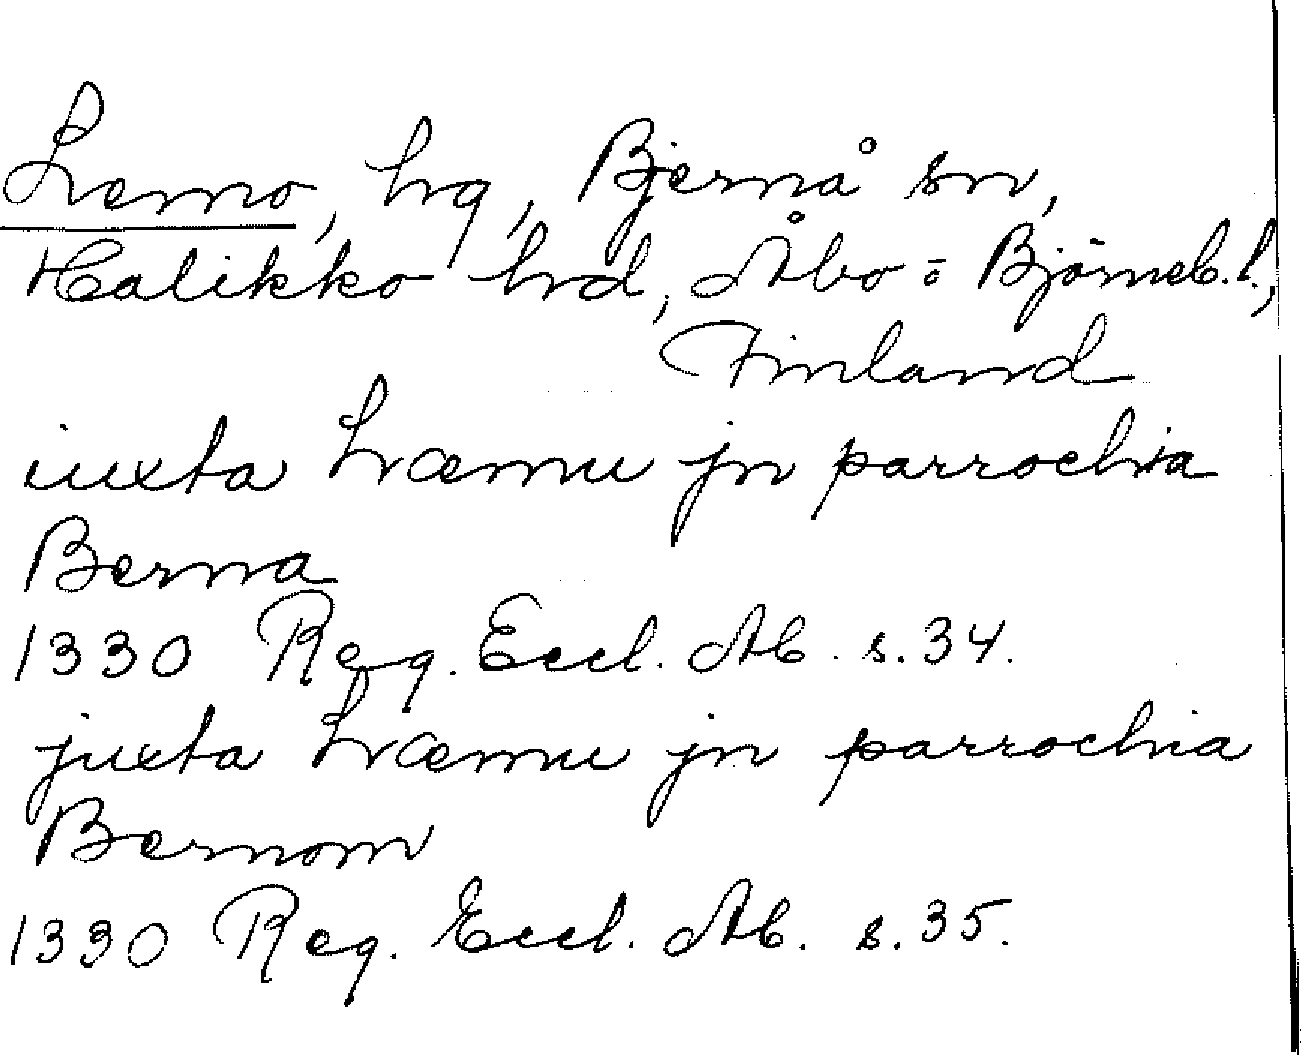 Lemo, hg, Bjernå sn,
Halikko hrd, Åbo = Björneb. l.,
Finland
iuxta Læmu jn parrochia
Berna
1330 Reg. Eccl. Ab. s. 34.
juxta Læmu jn parrochia
Bernom
1330 Reg. Eccl. Ab. s. 35.